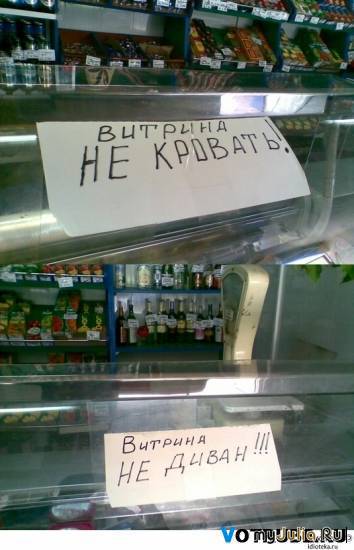 ВИТРИНА
НЕ КРОВАТЬ!
ВИТРИНА
НЕ ДИВАН!!!
idioteka.ru